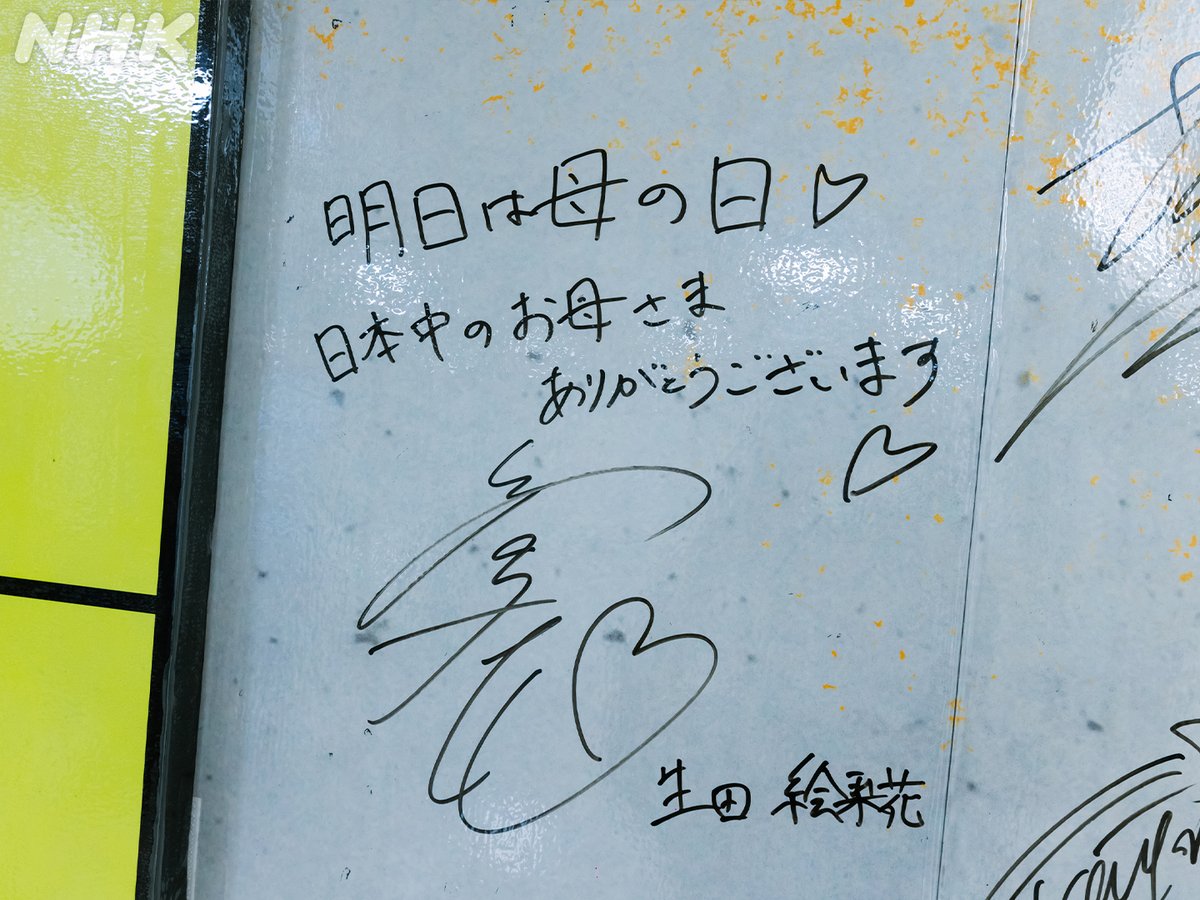 NHK
明日は母の日♡
日本中のお母さま
ありがとうございます
♡
生田 絵梨花